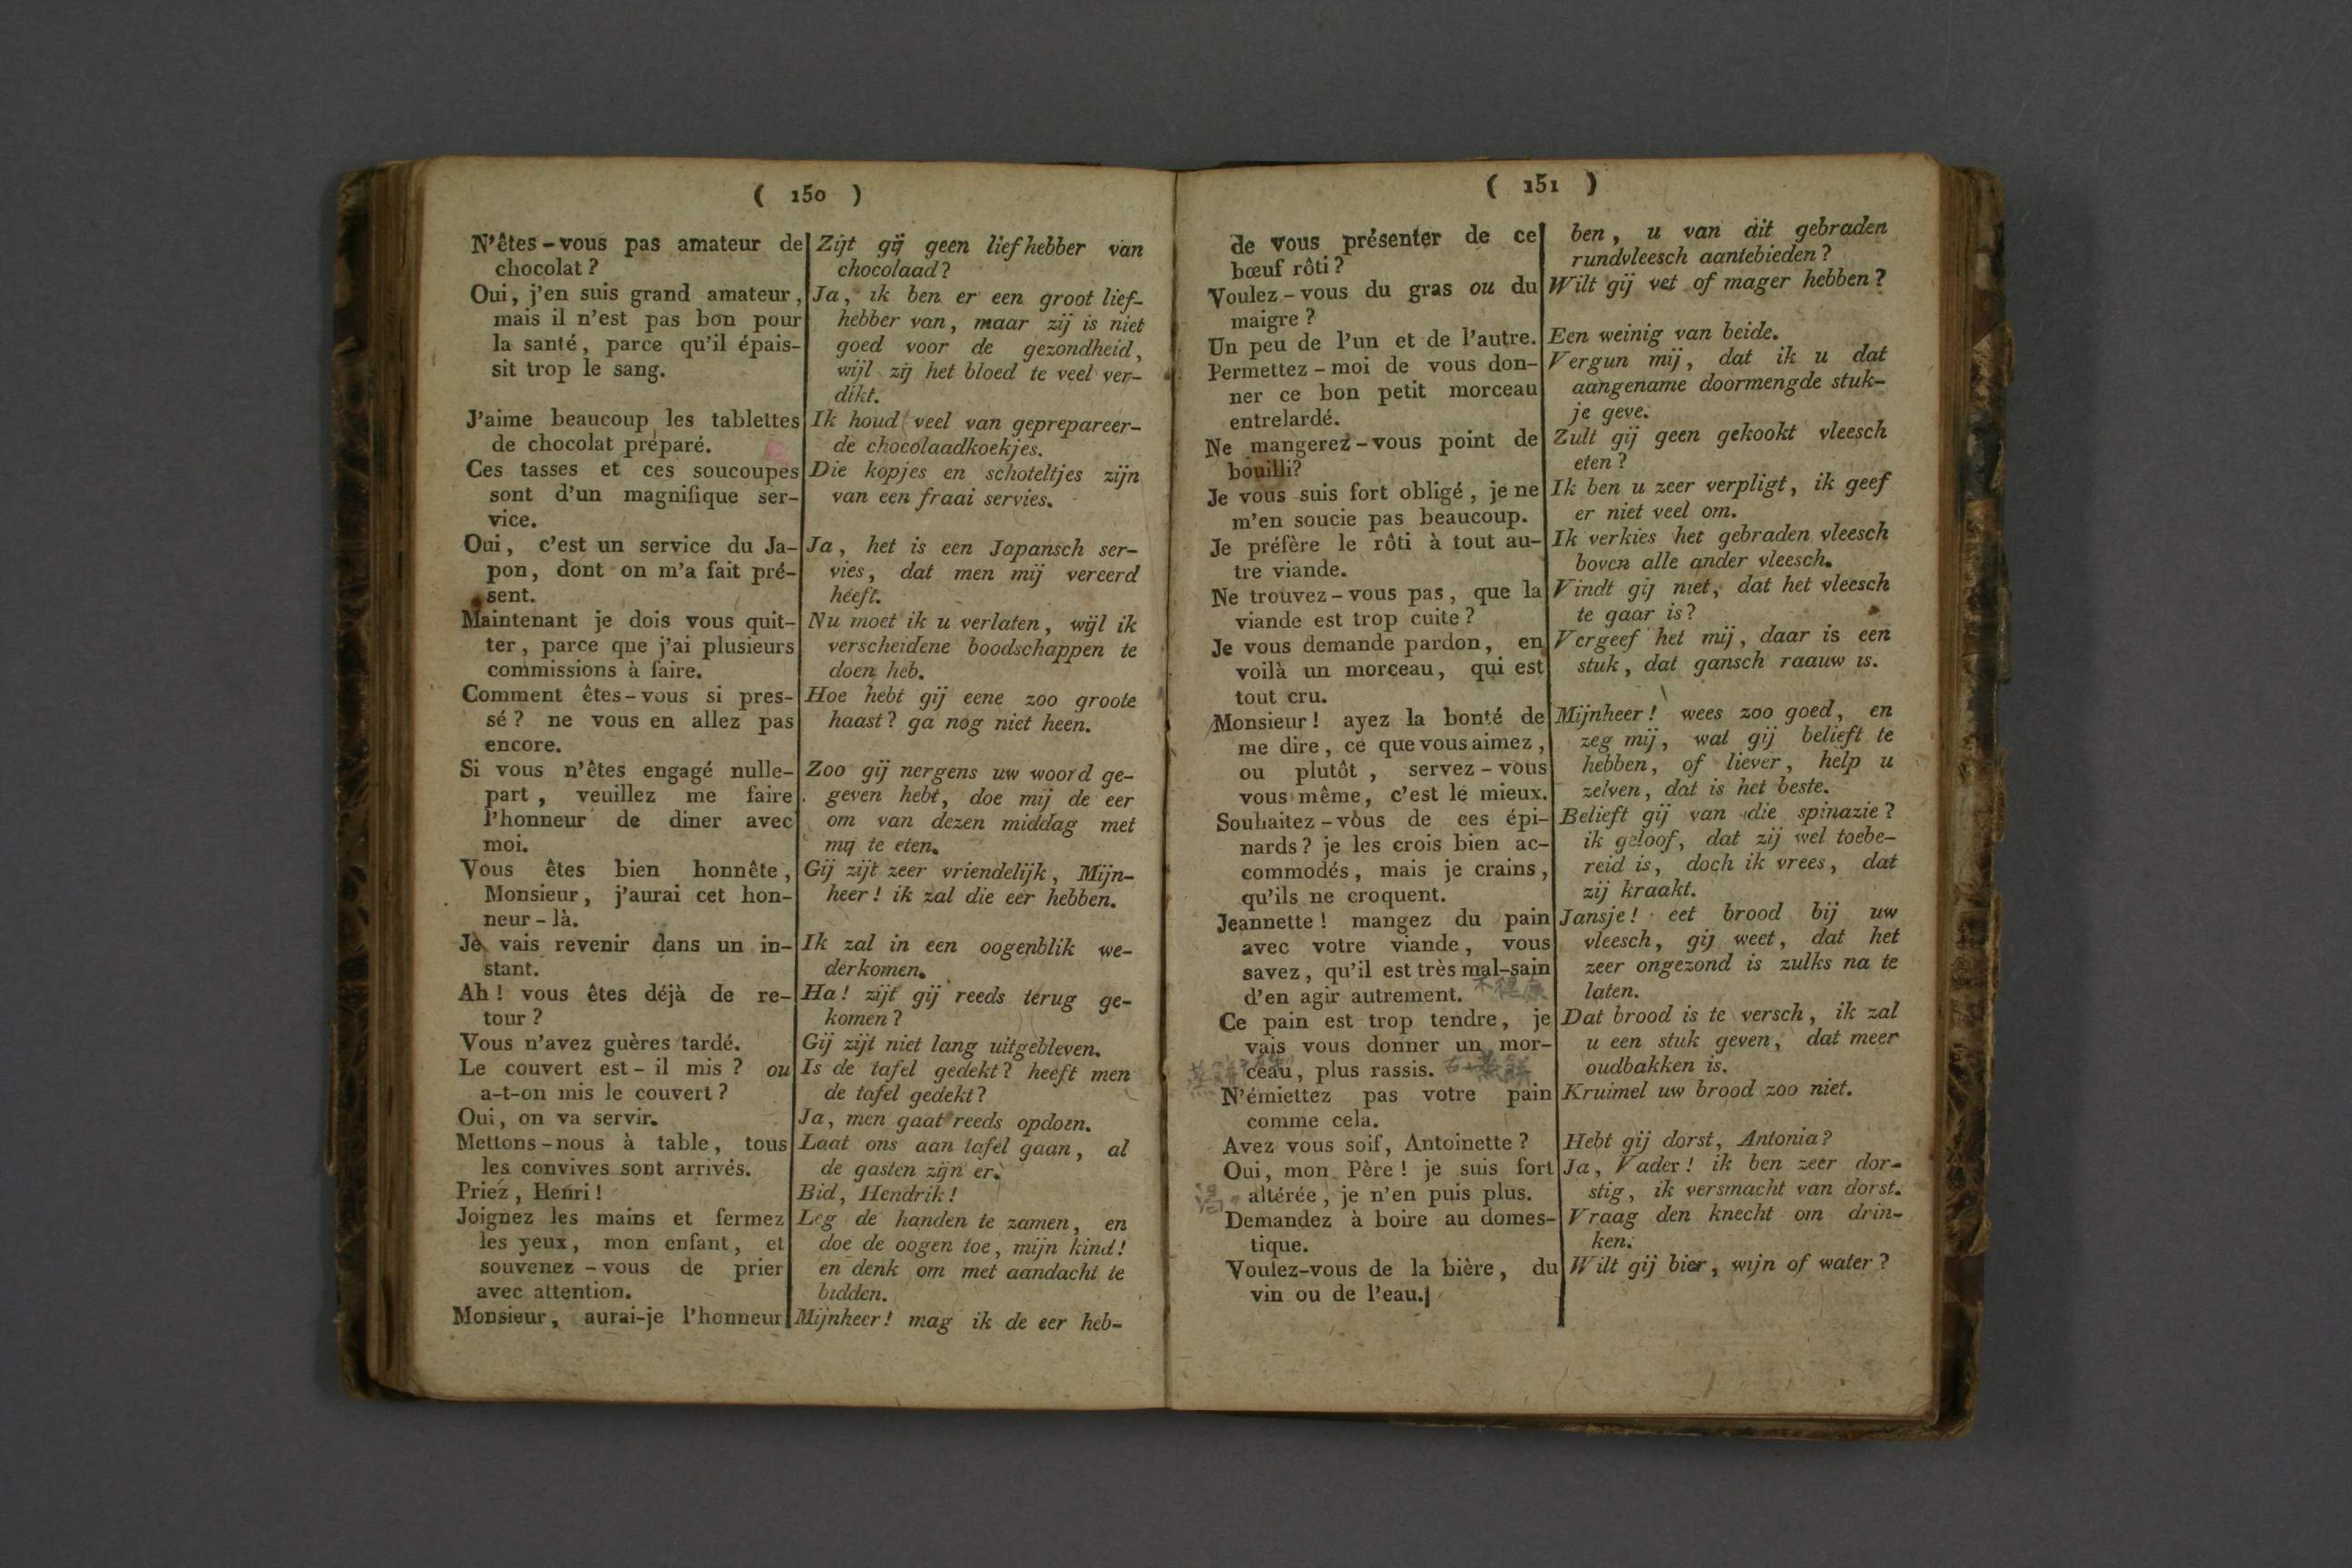 ( 150 )
N'êtes-vous pas amateur de
chocolat ?
Oui, j'en suis grand amateur,
mais il n'est pas bon pour
la santé, parce qu'il épais-
sit trop le sang.
J'aime beaucoup les tablettes
de chocolat préparé.
Ces tasses et ces soucoupes
sont d'un magnifique ser-
vice.
Oui, c'est un service du Ja-
pon, dont on m'a fait pré-
sent.
Maintenant je dois vous quit-
ter, parce que j'ai plusieurs
commissions à faire.
Comment êtes-vous si pres-
sé ? ne vous en allez pas
encore.
Si vous n'êtes engagé nulle-
part, veuillez me faire
l'honneur de diner avec
moi.
Vous êtes bien honnête,
Monsieur, j'aurai cet hon-
neur-là.
Je vais revenir dans un in-
stant.
Ah ! vous êtes déjà de re-
tour ?
Vous n'avez guères tardé.
Le couvert est-il mis ? ou
a-t-on mis le couvert ?
Oui, on va servir.
Mettons-nous à table, tous
les convives sont arrivés.
Priez, Henri !
Joignez les mains et fermez
les yeux, mon enfant, et
souvenez-vous de prier
avec attention.
Monsieur, aurai-je l'honneur
Zijt gij geen liefhebber van
chocolaad ?
Ja, ik ben er een groot lief-
hebber van, maar zij is niet
goed voor de gezondheid,
wijl zij het bloed te veel ver-
dikt.
Ik houd veel van geprepareer-
de chocolaadkoekjes.
Die kopjes en schoteltjes zijn
van een fraai servies.
Ja, het is een Japansch ser-
vies, dat men mij vereerd
heeft.
Nu moet ik u verlaten, wijl ik
verscheidene boodschappen te
doen heb.
Hoe hebt gij eene zoo groote
haast ? ga nog niet heen.
Zoo gij nergens uw woord ge-
geven hebt, doe mij de eer
om van dezen middag met
mij te eten.
Gij zijt zeer vriendelijk, Mijn-
heer ! ik zal die eer hebben.
Ik zal in een oogenblik we-
derkomen.
Ha ! zijt gij reeds terug ge-
komen ?
Gij zijt niet lang uitgebleven.
Is de tafel gedekt ? heeft men
de tafel gedekt ?
Ja, men gaat reeds opdoen.
Laat ons aan tafel gaan, al
de gasten zijn er.
Bid, Hendrik !
Leg de handen te zamen, en
doe de oogen toe, mijn kind !
en denk om met aandacht te
bidden.
Mijnheer ! mag ik de eer heb-
( 151 )
de vous présenter de ce
bœuf rôti ?
Voulez-vous du gras ou du
maigre ?
Un peu de l'un et de l'autre.
Permettez-moi de vous don-
ner ce bon petit morceau
entrelardé.
Ne mangerez-vous point de
bouilli ?
Je vous suis fort obligé, je ne
m'en soucie pas beaucoup.
Je préfère le rôti à tout au-
tre viande.
Ne trouvez-vous pas, que la
viande est trop cuite ?
Je vous demande pardon, en
voilà un morceau, qui est
tout cru.
Monsieur ! ayez la bonté de
me dire, ce que vous aimez,
ou plutôt, servez-vous
vous même, c'est le mieux.
Souhaitez-vous de ces épi-
nards ? je les crois bien ac-
commodés, mais je crains,
qu'ils ne croquent.
Jeannette ! mangez du pain
avec votre viande, vous
savez, qu'il est très mal-sain
d'en agir autrement.
Ce pain est trop tendre, je
vais vous donner un mor-
ceau, plus rassis.
N'émiettez pas votre pain
comme cela.
Avez vous soif, Antoinette ?
Oui, mon Père ! je suis fort
altérée, je n'en puis plus.
Demandez à boire au domes-
tique.
Voulez-vous de la bière, du
vin ou de l'eau.
ben, u van dit gebraden
rundvleesch aantebieden ?
Wilt gij vet of mager hebben ?
Een weinig van beide.
Vergun mij, dat ik u dat
aangename doormengde stuk-
je geve.
Zult gij geen gekookt vleesch
eten ?
Ik ben u zeer verpligt, ik geef
er niet veel om.
Ik verkies het gebraden vleesch
boven alle ander vleesch.
Vindt gij niet, dat het vleesch
te gaar is ?
Vergeef het mij, daar is een
stuk, dat gansch raauw is.
Mijnheer ! wees zoo goed, en
zeg mij, wat gij belieft te
hebben, of liever, help u
zelven, dat is het beste.
Belieft gij van die spinazie ?
ik geloof, dat zij wel toebe-
reid is, doch ik vrees, dat
zij kraakt.
Jansje ! eet brood bij uw
vleesch, gij weet, dat het
zeer ongezond is zulks na te
laten.
Dat brood is te versch, ik zal
u een stuk geven, dat meer
oudbakken is.
Kruimel uw brood zoo niet.
Hebt gij dorst, Antonia ?
Ja, Vader ! ik ben zeer dor-
stig, ik versmacht van dorst.
Vraag den knecht om drin-
ken.
Wilt gij bier, wijn of water ?